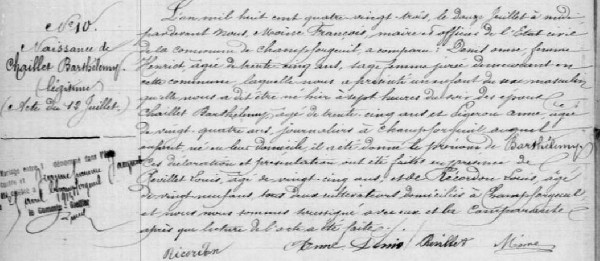 N° 10
Naissance de
Chaillot Barthélemy
légitime
(Acte du 12 Juillet)
L'an mil huit cent quatre-vingt trois, le douze Juillet à midi
pardevant Nous, Moine François, maire et officier de l'Etat civil
de la commune de Champforgeuil a comparu: Denis Anne, femme
Henriot âgée de trente cinq ans, sage femme jurée demeurant en
cette commune, laquelle nous a présenté un enfant du sexe masculin
qu'elle nous a dit être né hier à sept heures du soir des époux
Chaillot Barthélemy âgé de trente cinq ans et Anne, âgée
de vingt quatre ans, journaliers à Champforgeuil auquel
enfant né en leur domicile il a été donné le prénom de Barthélemy
Ces déclaration et présentation ont été faites en présence de
Louis, âgé de vingt-cinq ans, et de Ricordon Louis, âgé
de vingt neuf ans, tous deux cultivateurs domiciliés à Champforgeuil
et nous nous sommes soussigné avec eux et la Comparante
après que lecture de l'acte a été faite.
Ricordon Anne Denis Moine